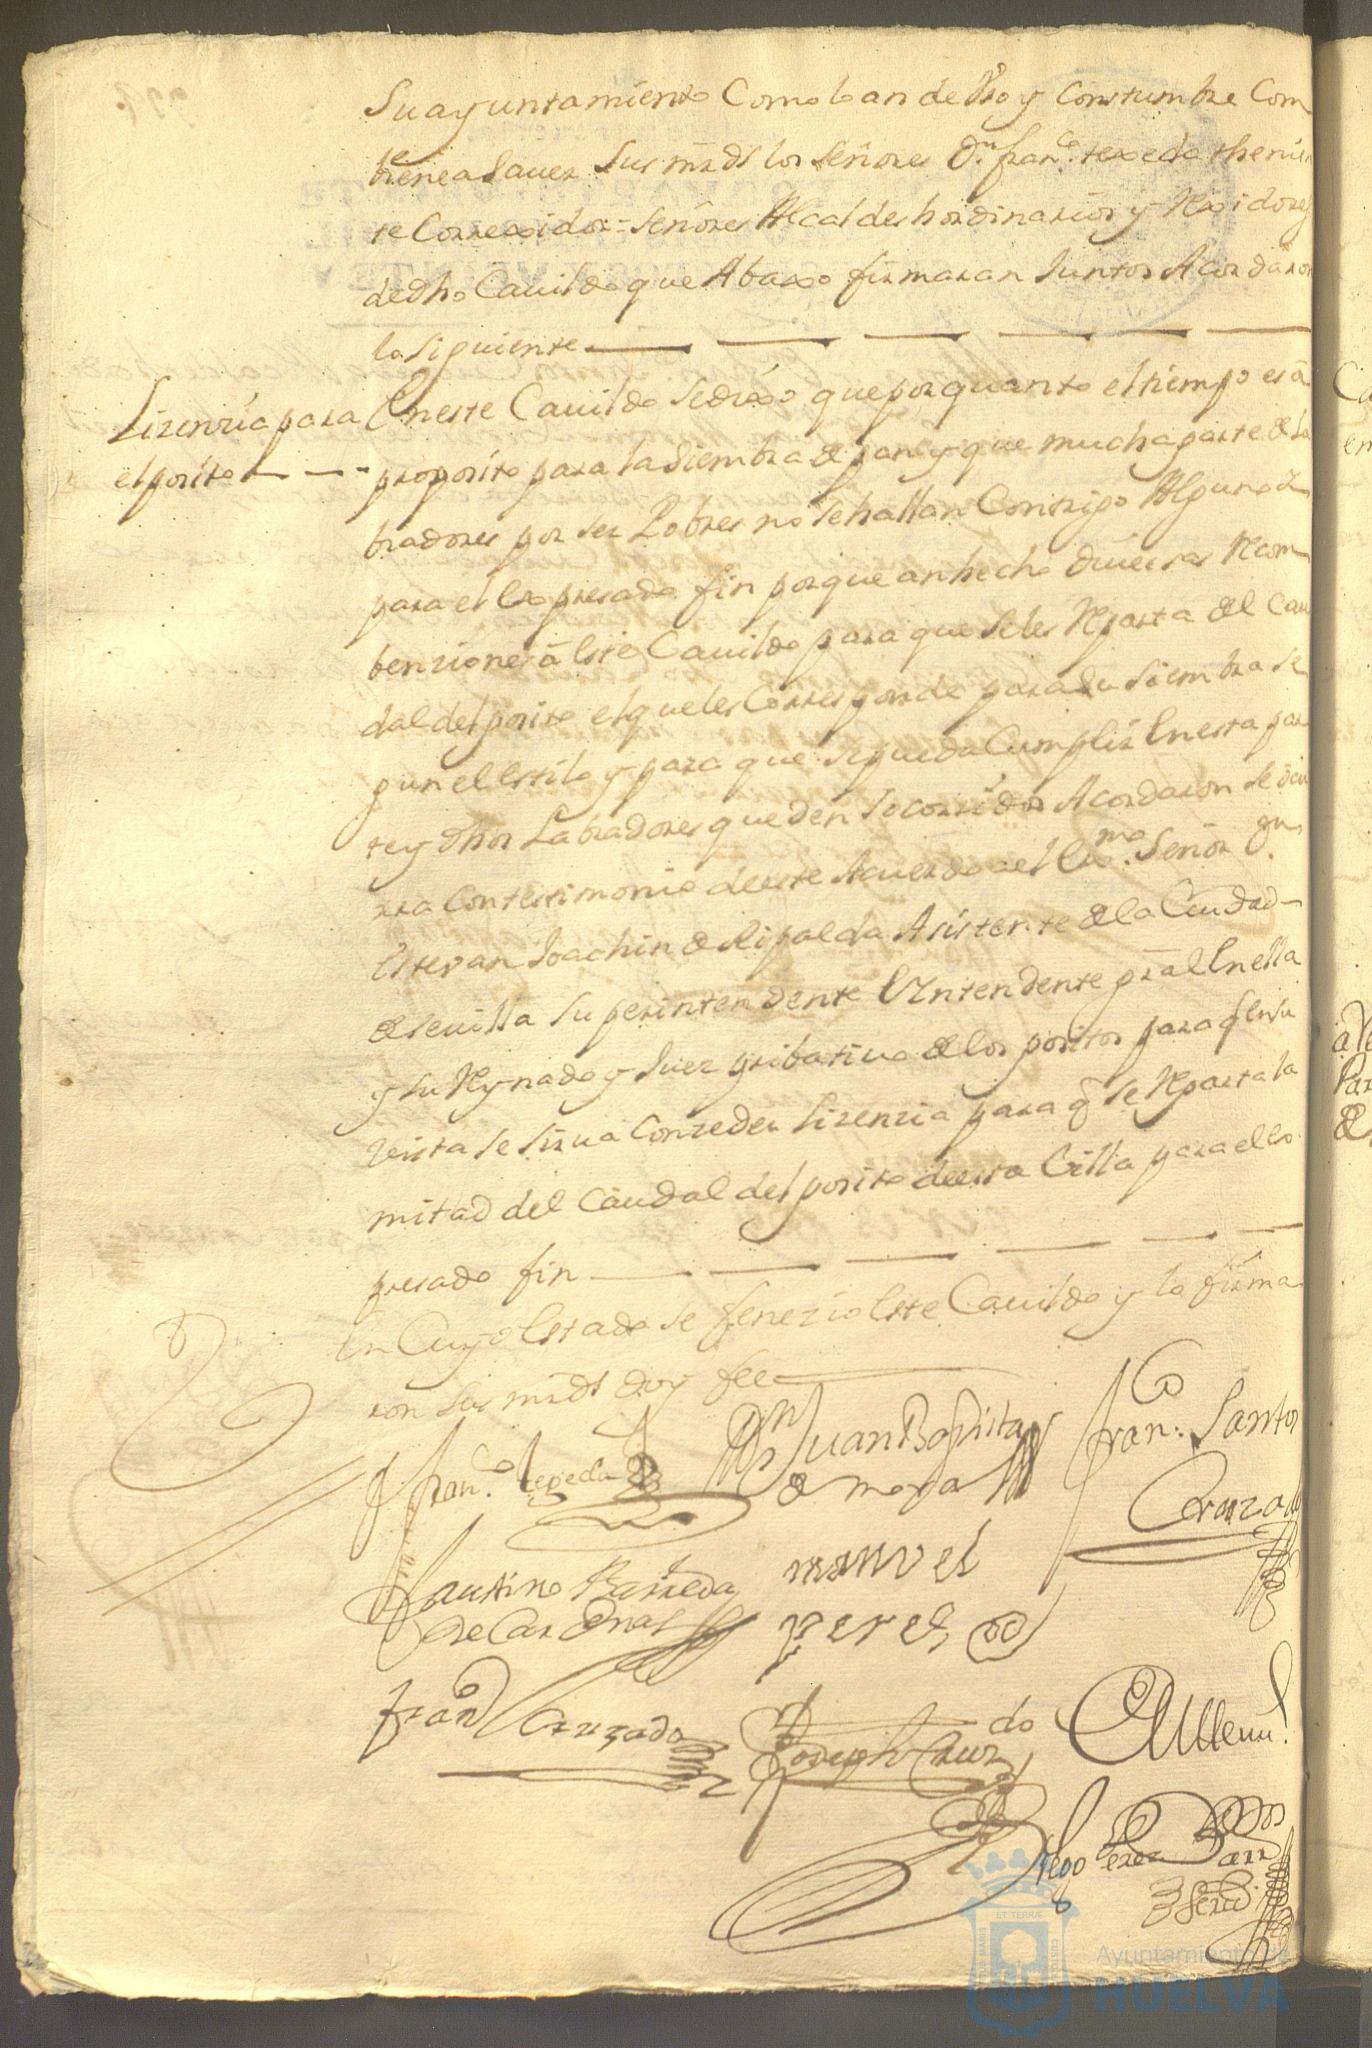 Su ayuntamiento Como lo an de Vso y Constumbre Com
biene a Sauer Sus mrds los Señores Dn. franco. texeda thenien
te Correxidor = Señores Alcaldes hordinarios y Rexidores
de dho Cauildo que Abaxo firmaran Juntos Acordaron
lo siguiente
Lizenzia para
el posito
En este Cauildo Se dixo que por quanto el tiempo es a
proposito para la Siembra de pan y que mucha parte de la
bradores por ser Pobres no se hallan Con trigo Alguno
para el Expresado fin porque an hecho diuersas Recom
benziones a este Cauildo para que se les Reparta del Cau
dal del posito el que les Corresponde para su Siembra se
gun el estilo y para que se pueda Cumplir En esta par
te y dhos Labradores queden socorridos Acordaron se ocu
rra Con testimonio de este Acuerdo a el Exmo. Señor Dn.
Esteuan Joachin de Ripalda Asistente de la Ciudad
de seuilla Superintendente E Yntendente gral En ella
y su Reynado y Juez pribatiuo de los positos para q en su
Vista se sirua Conzeder Lizenzia para q se Reparta la
mitad del Caudal del posito de esta Villa para el es
presado fin
En Cuyo Estado se fenezio este Cauildo y lo firma
ron sus mrds doy fee
franco. texeda
Dn Juan Baptista
de mora
franco. Santos
Cruzado
faustino Barreda
de Cardenas
manuel
perez
franco Cruzado
Joseph Cruzdo
Diego Perez Barr
Esno
ET TERRÆ
Ayuntamiento de
HUELVA